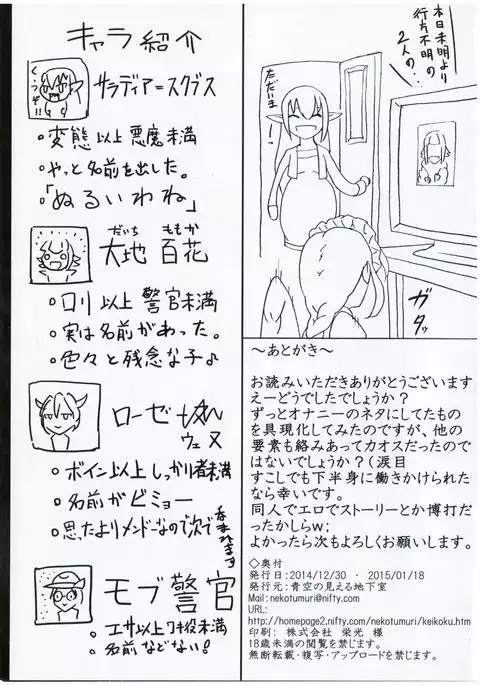 本日未明より
行方不明の
2人の・・
ただいま!
ガタッ
キャラ紹介
サラディア=スクブス
くっつぞ!!
・変態以上悪魔未満
・やっと名前を出した。
・「ぬるいわね」
だいち ももか
大地 百花
・ロリ以上警官未満
・実は名前があった。
・色々と残念な子♪
ローゼ
・ボイン以上しっかり者未満
・名前がビミョー
・思たよりメンドーなので次で
モブ警官
・エサ以上ワキ役未満
・名前などない!
~あとがき~
お読みいただきありがとうございます
えーどうでしたでしょうか?
ずっとオナニーのネタにしてたもの
を具現化してみたのですが、他の
要素も絡みあってカオスだったので
はないでしょうか?(涙目
すこしでも下半身に働きかけられた
なら幸いです。
同人でエロでストーリーとか博打だ
ったかしらw;
よかったら次もよろしくお願いします。
◇奥付
発行日:2014/12/30 ・ 2015/01/18
発行元:青空の見える地下室
Mail:nekotumuri@nifty.com
URL:
http://homepage2.nifty.com/nekotumuri/keikoku.htm
印刷: 株式会社 栄光 様
18歳未満の閲覧を禁じます。
無断転載・複写・アップロードを禁じます。